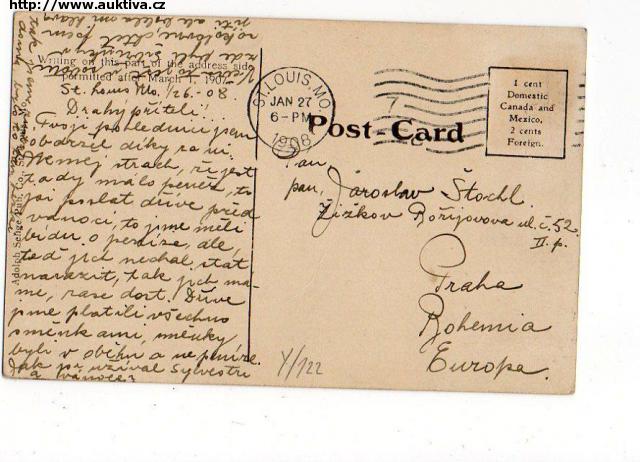 http://www.auktiva.cz
Writing on this part of the address side
permitted after March 1, 1907.
St. Louis Mo. 1/26.-08
Drahý příteli!
Tvoji pohlednici jsem
obdržel díky za ni.
Neměj strach, že jest
tady málo peněz, to
jsi poslat dříve před
vánoci, to jsme měli
bídu o peníze, ale,
teď jich nechal stát
narazit, tak jich má-
me, zase dost. Dříve
jsme platili všechno
směnkami, směnky
byli v oběhu a ne peníze.
Jak jsi užíval Sylvestri
a vánoce?
Adolph Selige Pub. Co., St. Louis
ST. LOUIS, MO.
JAN 27
6-PM
1908
Post-Card
1 cent
Domestic
Canada and
Mexico,
2 cents
Foreign.
Pan
pan, Jaroslav Štochl.
Žižkov Bořivovova ul. č. 52.
II. p.
Praha
Bohemia
Europa.
Y/122